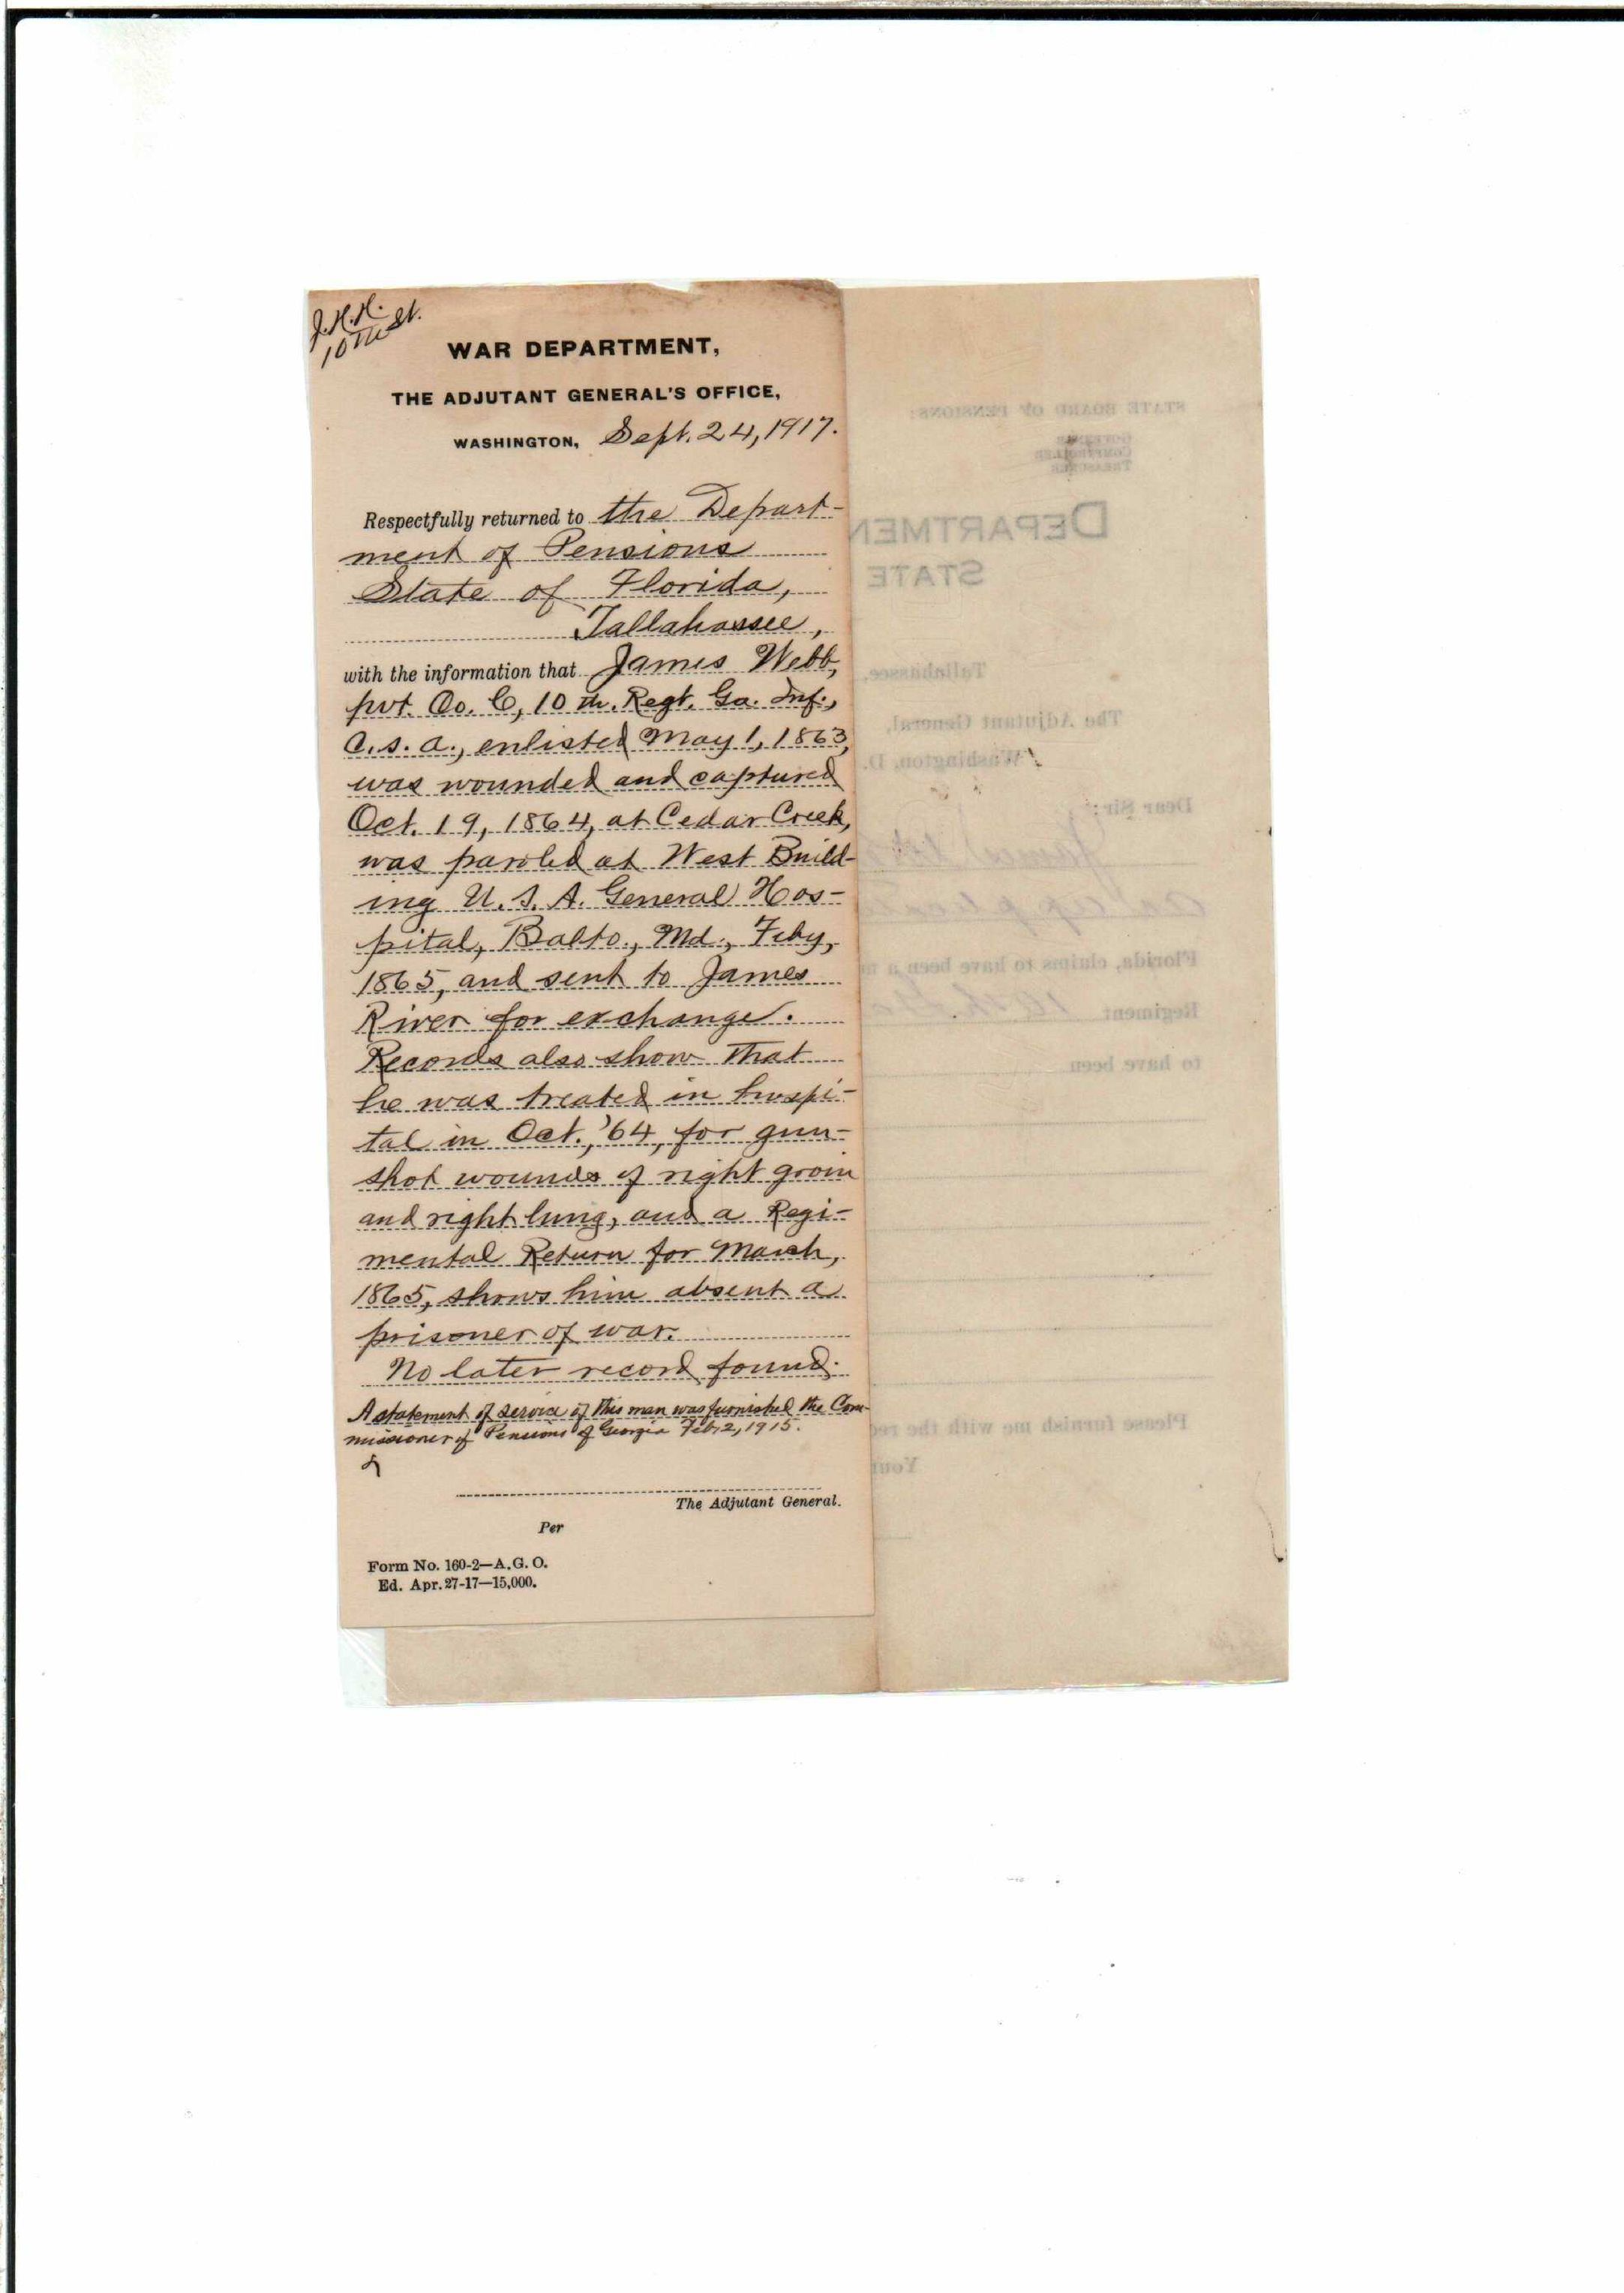 J.H.H.
10th St.
WAR DEPARTMENT,
THE ADJUTANT GENERAL'S OFFICE,
WASHINGTON, Sept. 24, 1917.
Respectfully returned to the Depart-
ment of Pensions
State of Florida,
Tallahassee,
with the information that James Webb,
pvt. Co. C, 10 th. Regt. Ga. Inf.,
C.S.A., enlisted May 1, 1863,
was wounded and captured
Oct. 19, 1864, at Cedar Creek,
was paroled at West Build-
ing U.S.A. General Hos-
pital, Balto., Md., Feby,
1865, and sent to James
River for exchange.
Records also show that
he was treated in hospi-
tal in Oct., '64, for gun-
shot wounds of right groin
and right lung, and a Regi-
mental Return for March,
1865, shows him absent a
prisoner of war.
No later record found.
A statement of service of this man was furnished the Com-
missioner of Pensions of Georgia Feb. 2, 1915.
The Adjutant General.
Per
Form No. 160-2—A.G.O.
Ed. Apr. 27-17—15,000.
STATE BOARD OF PENSIONS:
GOVERNOR
COMPTROLLER
TREASURER
DEPARTMEN
STATE
Tallahassee,
The Adjutant General,
Washington, D.
Dear Sir:
James
Florida, claims to have been a m
Regiment 10th
to have been
Please furnish me with the rec
Your